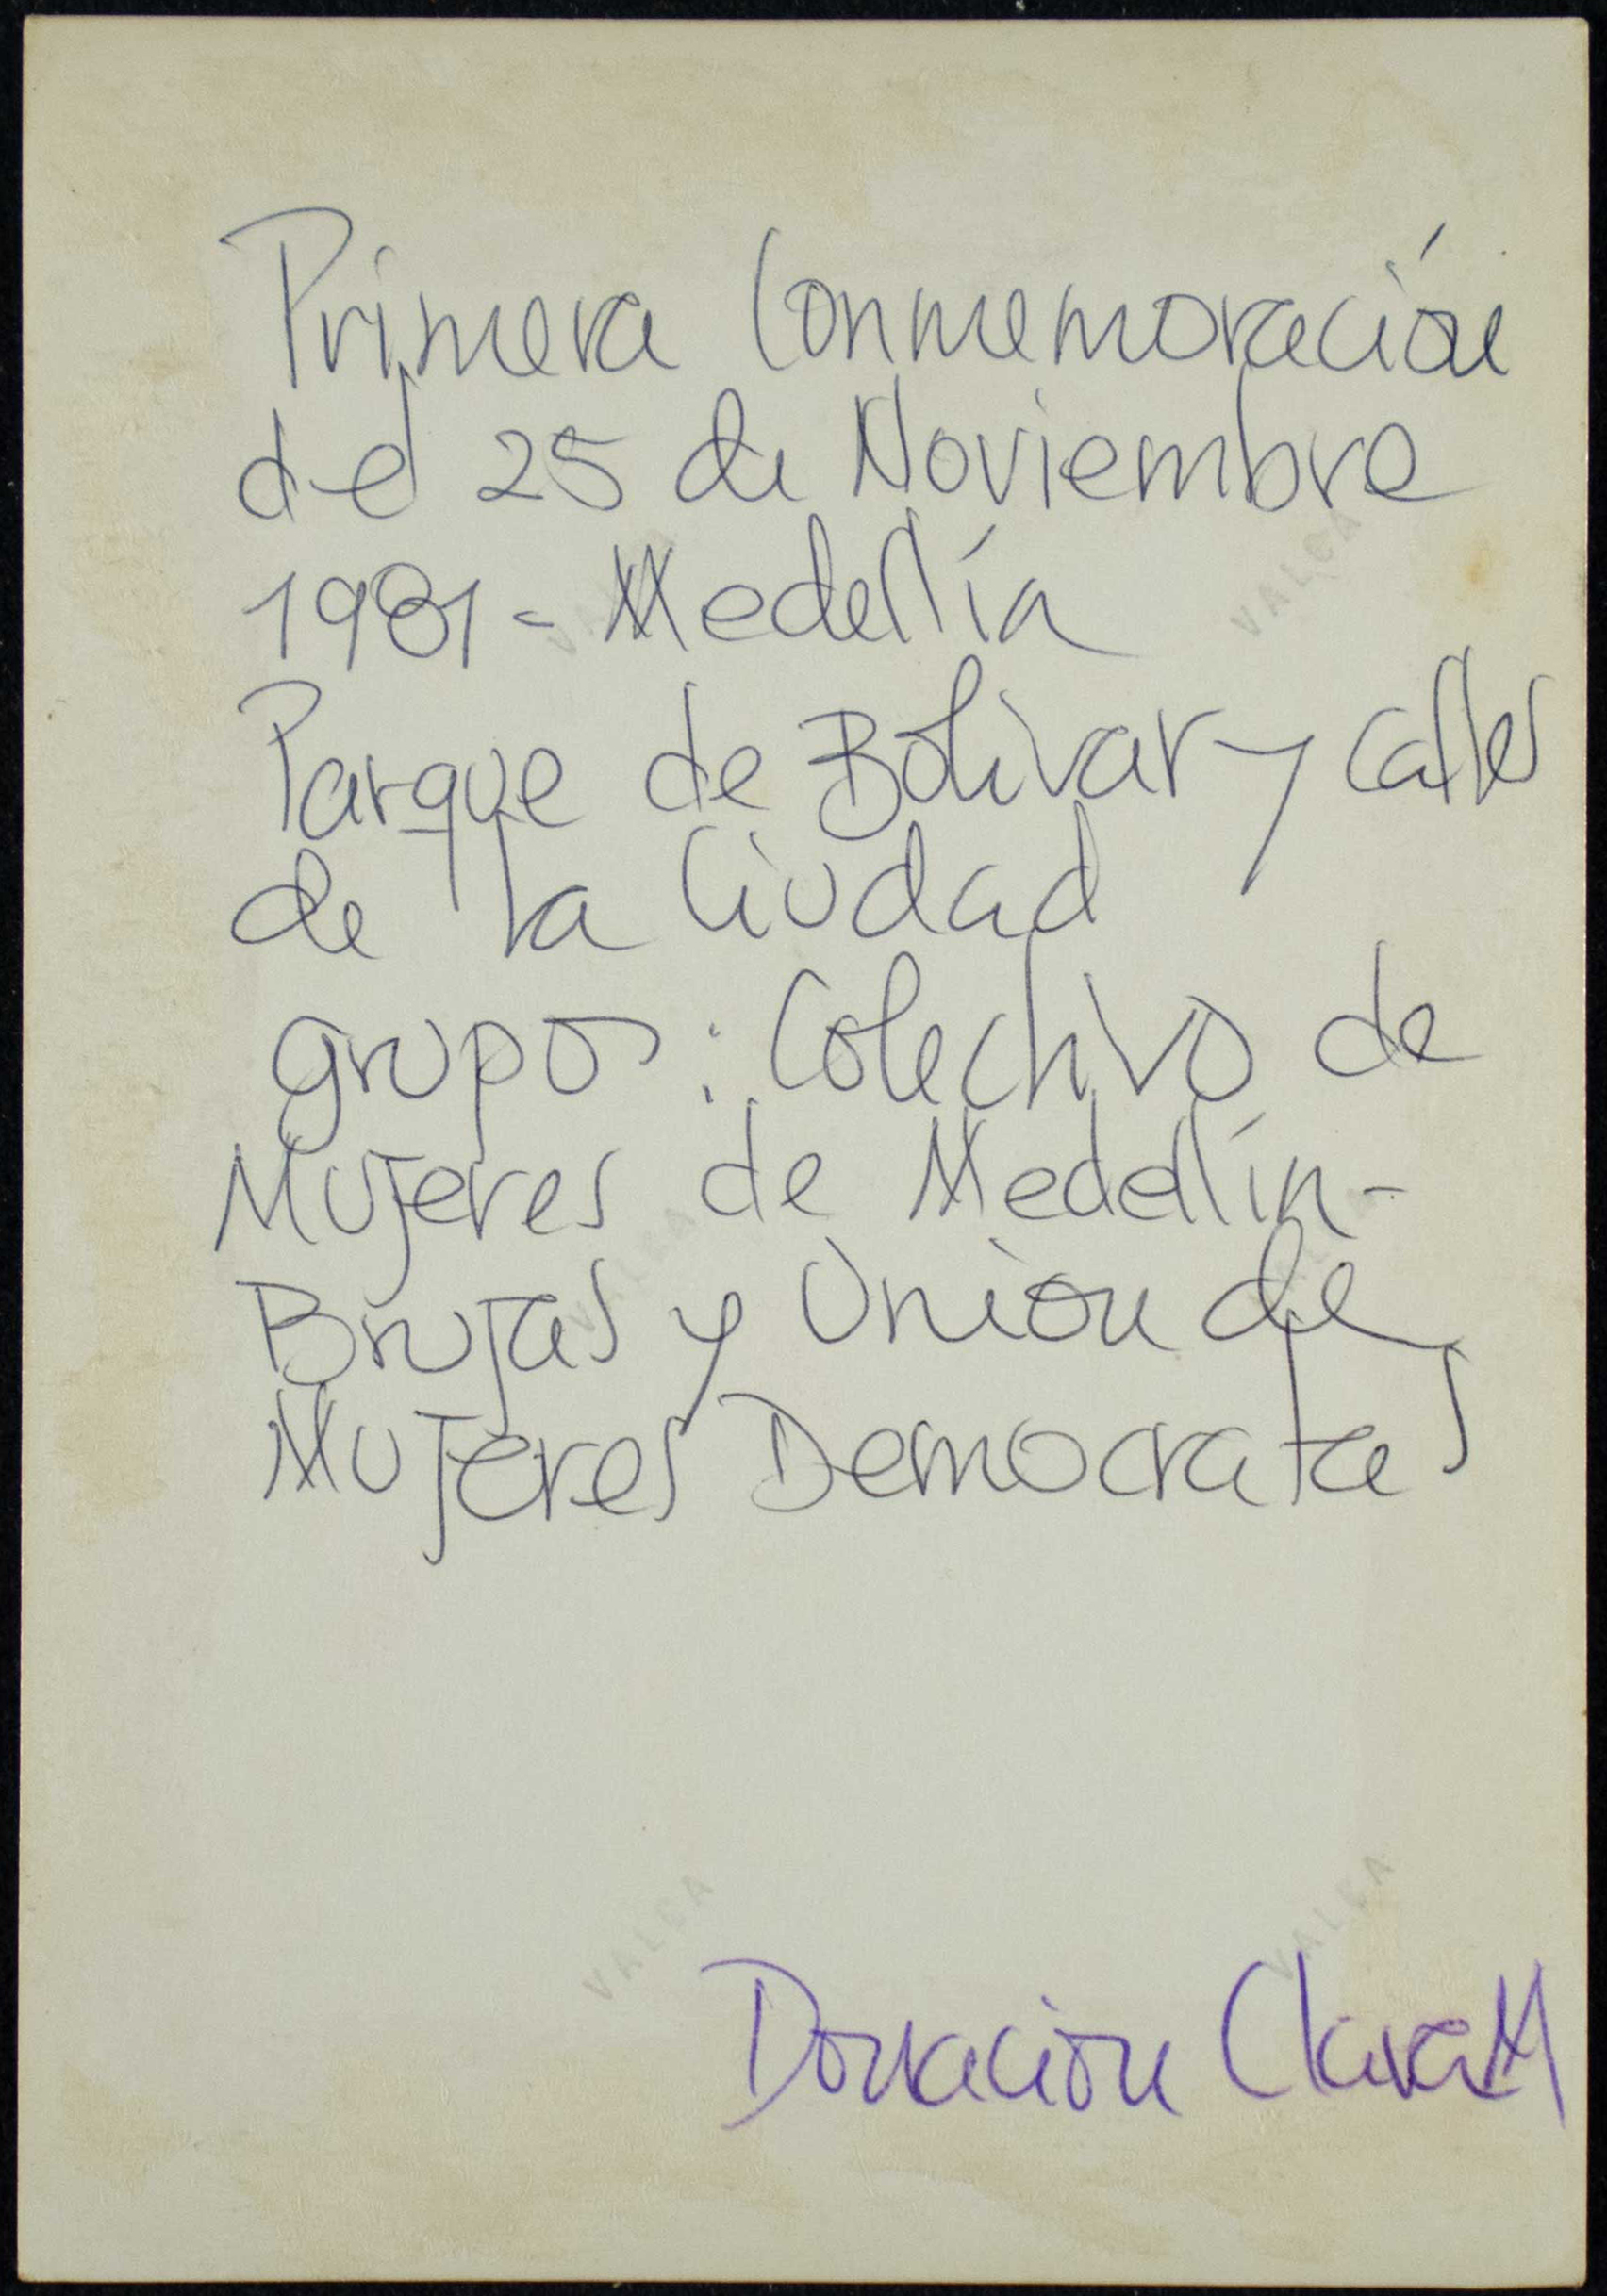 Primera Conmemoración
del 25 de Noviembre
1981 - Medellín
Parque de Bolivar y calles
de la Ciudad
grupos : Colectivo de
Mujeres de Medellín -
Brujas y Union de
Mujeres Democratas
VALCA
VALCA
VALCA
VALCA
Donacion Clara M